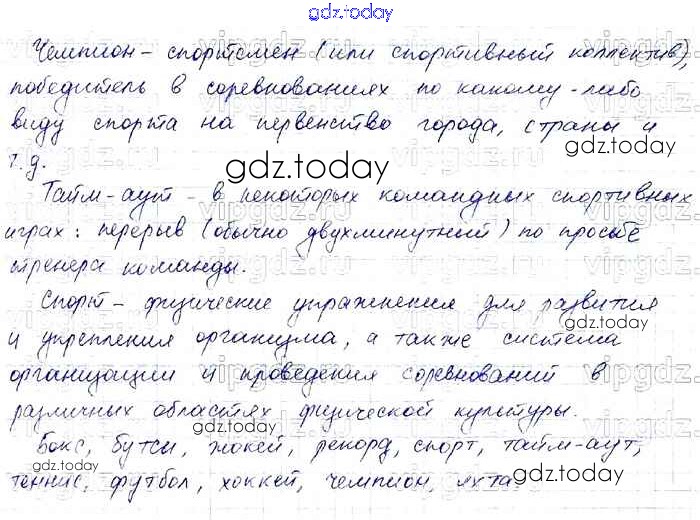 gdz.today
Чемпион – спортсмен (или спортивный коллектив),
победитель в соревнованиях по какому-либо
виду спорта на первенство города, страны и
т.д.
gdz.today
gdz.today
Тайм-аут – в некоторых командных спортивных
играх: перерыв (обычно двухминутный) по просьбе
тренера команды.
gdz.today
Спорт – физические упражнения для развития
gdz.today
и укрепления организма, а также система
организации и проведения соревнований в
различных областях физической культуры.
gdz.today
Бокс, бутсы, жокей, рекорд, спорт, тайм-аут,
gdz.today
теннис, футбол, хоккей, чемпион, яхта.
gdz.today